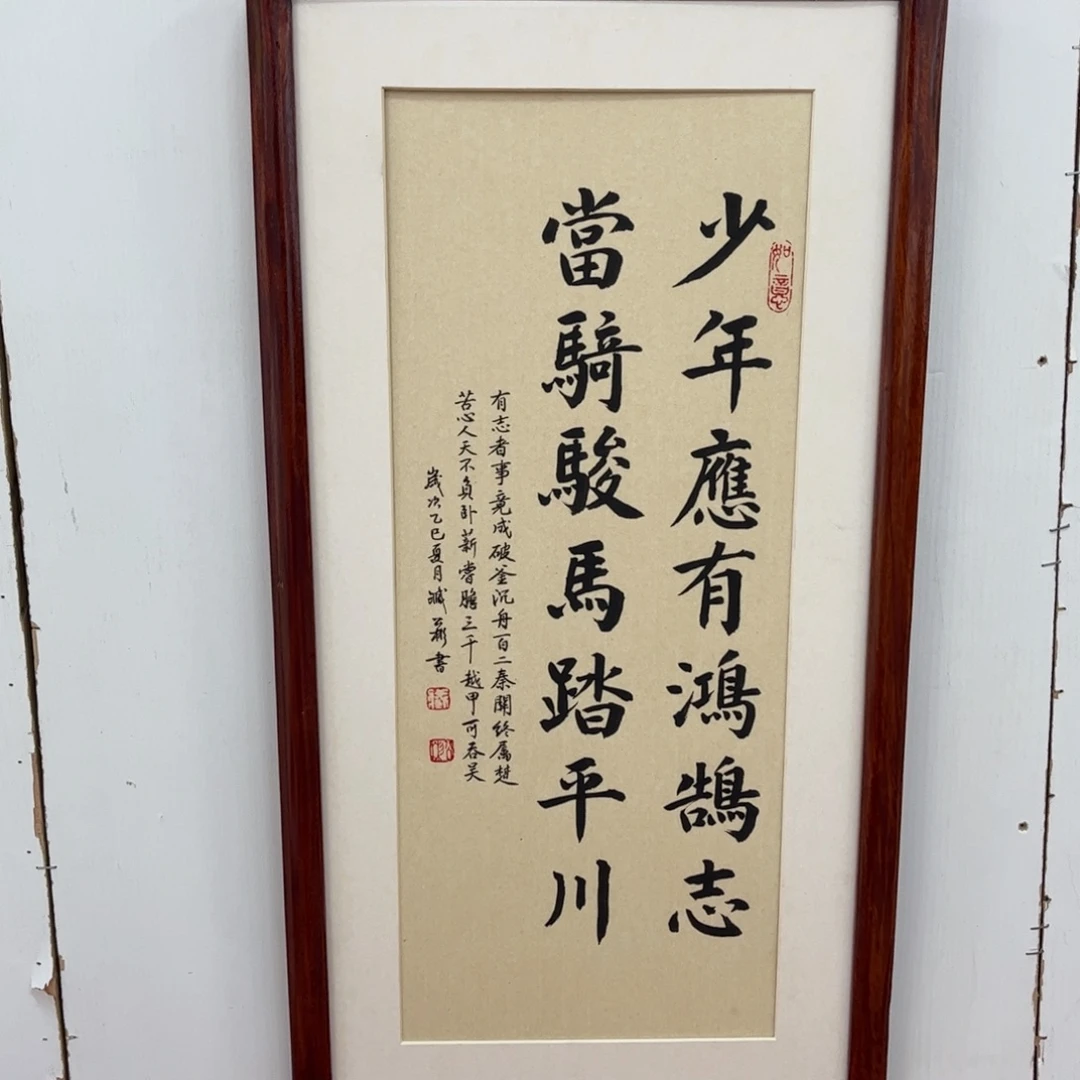 少年應有鴻鵠志
如意
當騎駿馬踏平川
有志者事竟成破釜沉舟百二秦關終屬楚
苦心人天不負卧薪嘗膽三千越甲可吞吴
歲次乙巳夏月
書